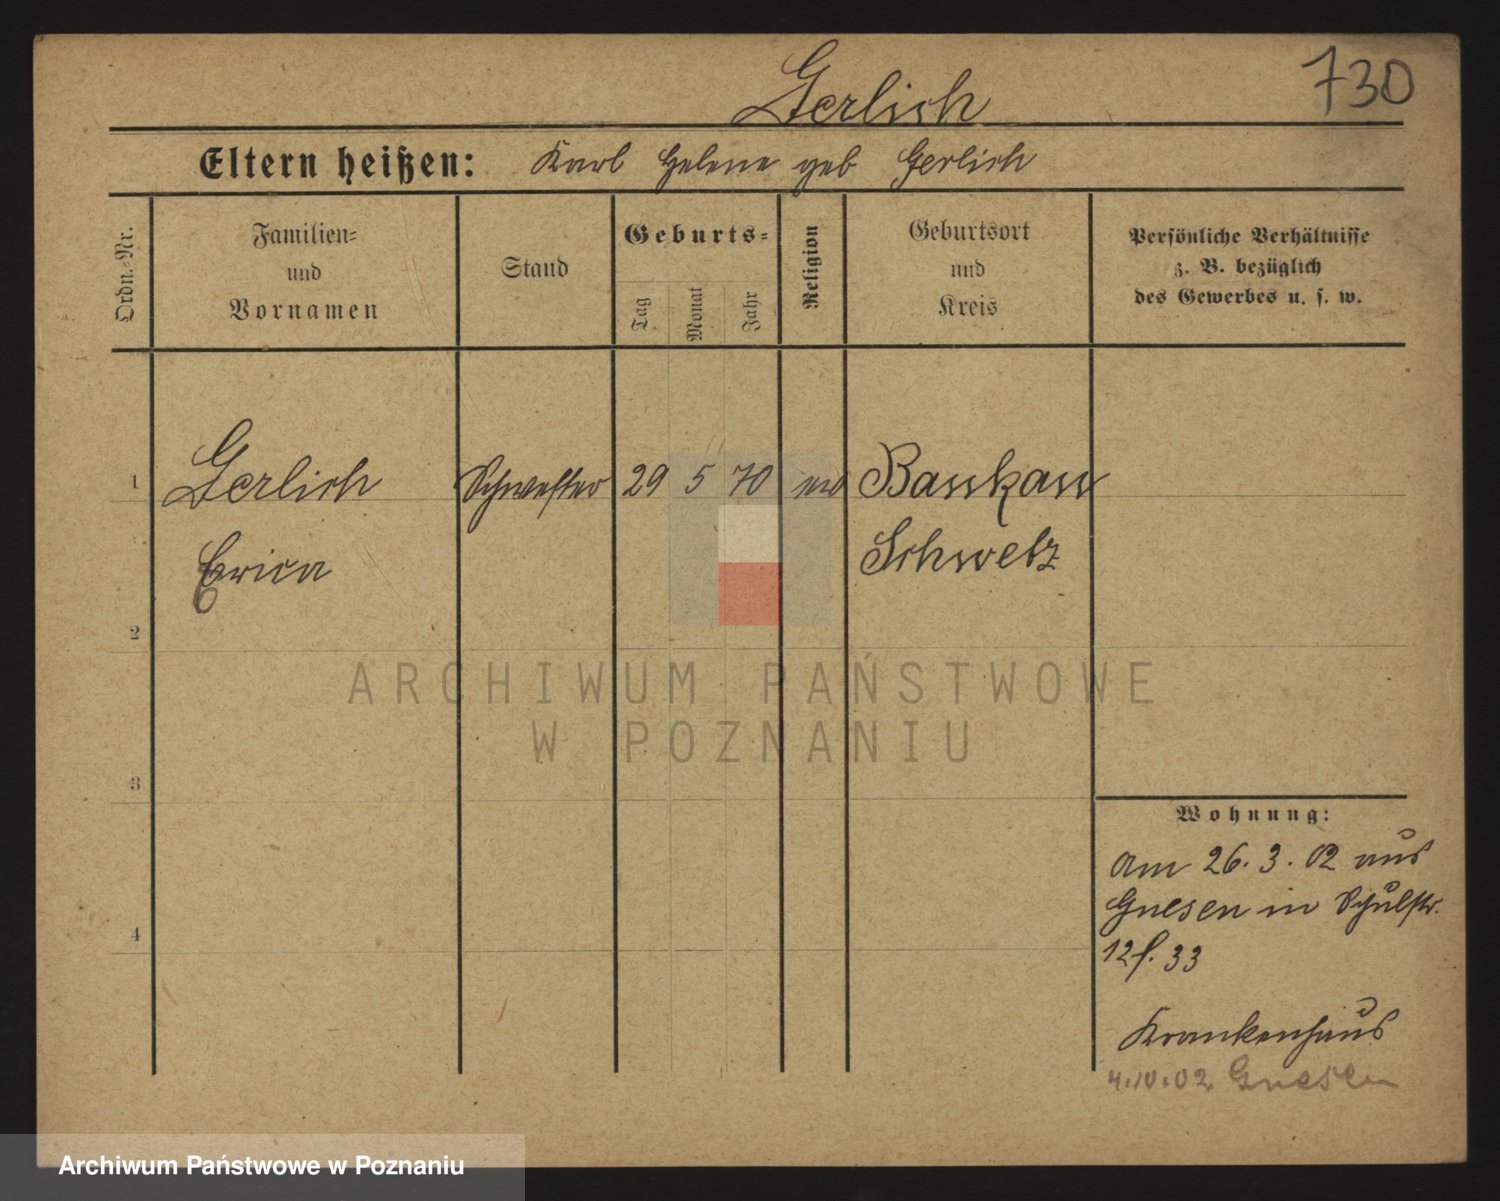 Gerlich
730
Eltern heißen: Karl Helene geb Gerlich
Ordn.-Nr.
Familien- und Vornamen
Stand
Geburts-
Tag
Monat
Jahr
Religion
Geburtsort und Kreis
Persönliche Verhältnisse
z. B. bezüglich
des Gewerbes u. s. w.
1 Gerlich Schwester 29 5 70 ev Bankau
Erica Schwetz
2
ARCHIWUM PAŃSTWOWE
W POZNANIU
3
Wohnung:
am 26. 3. 02 aus
Gnesen in Schulstr.
4
12 f. 33
Krankenhaus
4.10.02 Gnesen
Archiwum Państwowe w Poznaniu